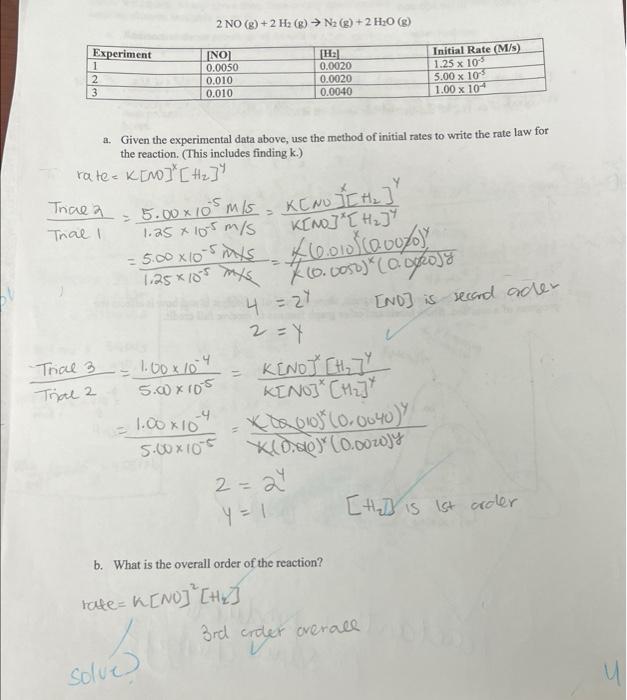 2 NO (g) + 2 H₂ (g) → N₂ (g) + 2 H₂O (g)
Experiment [NO] [H₂] Initial Rate (M/s)
1 0.0050 0.0020 1.25 x 10⁻⁵
2 0.010 0.0020 5.00 x 10⁻⁵
3 0.010 0.0040 1.00 x 10⁻⁴
a. Given the experimental data above, use the method of initial rates to write the rate law for
the reaction. (This includes finding k.)
rate = K[NO]ˣ[H₂]ʸ
Trial 2 / Trial 1 = 5.00 × 10⁻⁵ M/s / 1.25 × 10⁻⁵ M/s = K[NO]ˣ[H₂]ʸ / K[NO]ˣ[H₂]ʸ
= 5.00 × 10⁻⁵ M/s / 1.25 × 10⁻⁵ M/s = K(0.010)ˣ(0.0020)ʸ / K(0.0050)ˣ(0.0020)ʸ
4 = 2ʸ [NO] is second order
2 = y
Trial 3 / Trial 2 = 1.00 × 10⁻⁴ / 5.00 × 10⁻⁵ = K[NO]ˣ[H₂]ʸ / K[NO]ˣ[H₂]ʸ
= 1.00 × 10⁻⁴ / 5.00 × 10⁻⁵ = K(0.010)ˣ(0.0040)ʸ / K(0.010)ˣ(0.0020)ʸ
2 = 2ʸ
y = 1 [H₂] is 1st order
b. What is the overall order of the reaction?
rate = K[NO]²[H₂]
3rd order overall
solve?
4